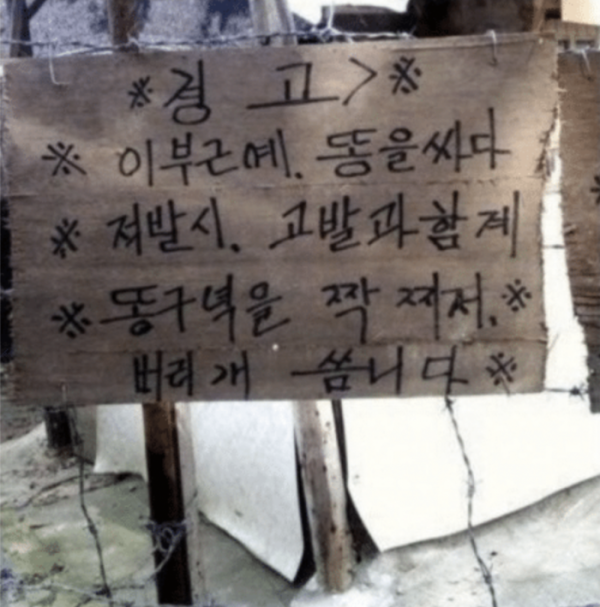 ※경 고>※
※ 이부근에. 똥을싸다
※ 저발시. 고발과함계
※똥구녁을 짝 찌저.※
버리개 씀니다※